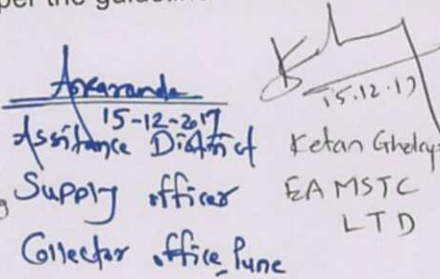 per the guideline
15-12-2017
15.12.17
Assitance District
Supply officer
Collector office Pune
Ketan
EA MSTC
LTD